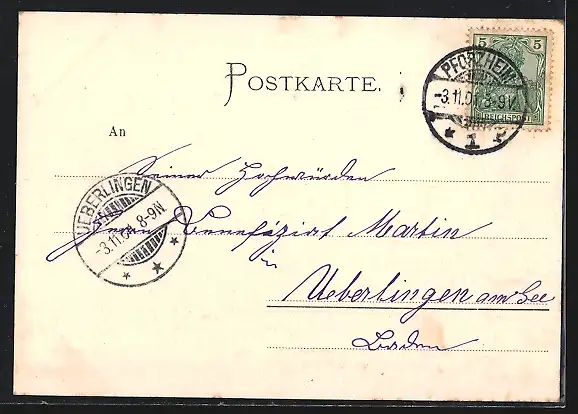 5 5
REICHSPOST
PFORZHEIM
-3.11.01. 8-9V.
* 1 *
POSTKARTE.
An
Seiner Hochwürden
Herrn Benefiziat Martin
in
Ueberlingen am See
Baden
UEBERLINGEN
-3.11.01. 8-9N.